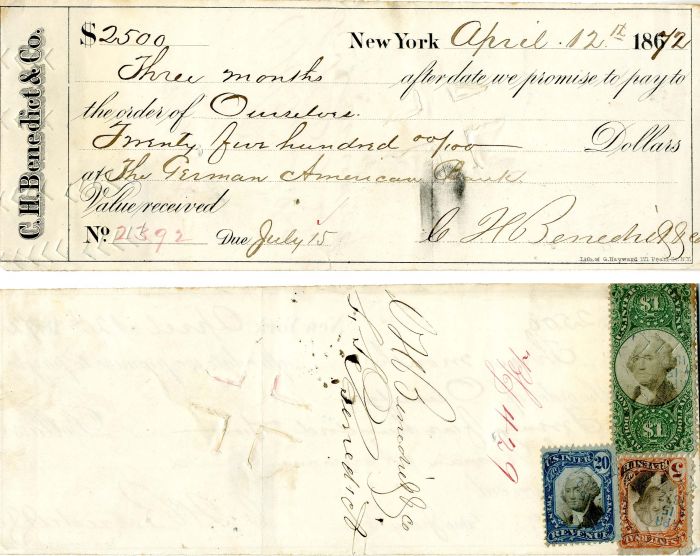 C. H. Benedict & Co.
$2500 New York April 12th 1872
Three months after date we promise to pay to
the order of Ourselves
Twenty five hundred 00/100 Dollars
at The German American Bank
Value received
No. 21392 Due July 15 C H Benedict & Co
Lith. of G. Hayward 171 Pearl St. N.Y.
C H Benedict & Co
Benedict
$1
$1
U.S. INTER
20
REVENUE
5